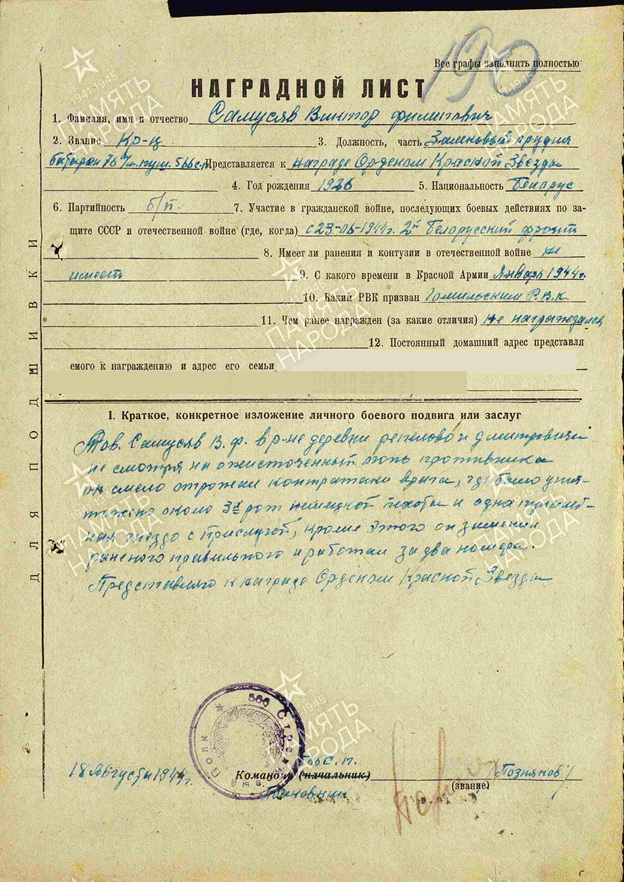 190
Все графы заполнять полностью
НАГРАДНОЙ ЛИСТ
1. Фамилия, имя и отчество Самусяв Виктор Филипович
2. Звание Кр-ц 3. Должность, часть Замковый орудия
батареи 76 м/м пуш. 566с.п. Представляется к награде Орденом Красной Звезды
4. Год рождения 1926 5. Национальность Беларус
6. Партийность б/п. 7. Участие в гражданской войне, последующих боевых действиях по за-
щите СССР и отечественной войне (где, когда) с 23-06-1944г. 2й Белорусский фронт
8. Имеет ли ранения и контузии в отечественной войне не
имеет 9. С какого времени в Красной Армии Январь 1944г.
10. Каким РВК призван Гомильским Р.В.К.
11. Чем ранее награжден (за какие отличия) Не награжедался
12. Постоянный домашний адрес представля
емого к награждению и адрес его семьи
I. Краткое, конкретное изложение личного боевого подвига или заслуг
Тов. Самусяв В.Ф. в р-не деревни и Дмитровичи
не смотря на ожисточенный огонь противника
он смело отрожал контратаки врага, где было унич-
тожено около 3х рот немецкой пехоты и одна пулемёт-
ная гнездо с прислугой, кроме этого он заменил
раненого правильного и работал за два номера.
Представляю к награде Орденом Красной Звезды
566 Стрелк Полк
18 Августы 1944г.
566 с.п.
Командир (начальник)
Полковник
Позняков/
(звание)
ДЛЯ ПОДШИВКИ
ПАМЯТЬ НАРОДА
1941 1945